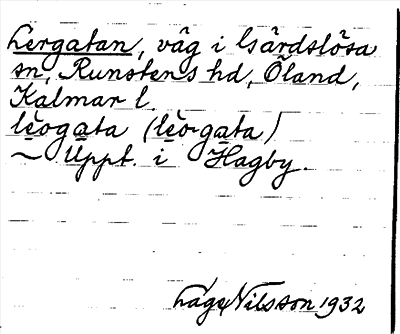 Lergatan, väg i Gärdslösa
sn, Runstens hd, Öland,
Kalmar l.
leogata (leo-gata)
~ Uppt. i Hagby.
Låge Nilsson 1932